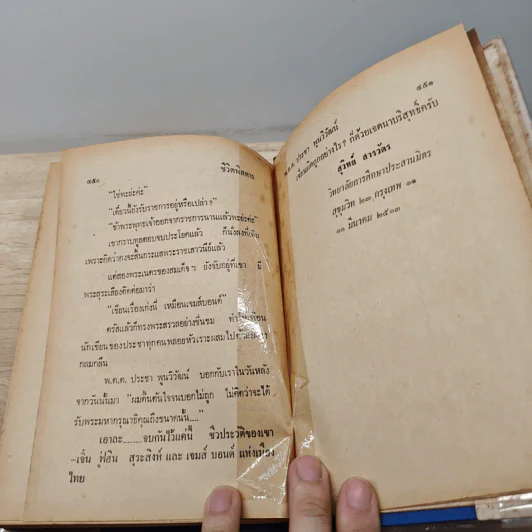 ๔๕๐ ชีวิตพิสดาร
"ใช่พะย่ะค่ะ"
"เดี๋ยวนี้ยังรับราชการอยู่หรือเปล่า?"
"ข้าพระพุทธเจ้าออกจากราชการนานแล้วพะย่ะค่ะ"
เขากราบทูลตอบจบประโยคแล้ว ก็นั่งลงที่เดิม
เพราะคิดว่าคงจะสิ้นกระแสพระราชเสาวนีย์แล้ว
แต่สองพระเนตรของสมเด็จ ๆ ยังจับอยู่ที่เขา มี
พระสุรเสียงตัดต่อมาว่า
"เขียนเรื่องเก่งนี่ เหมือนเจมส์บอนด์"
ตรัสแล้วก็ทรงพระสรวลอย่างชื่นชม
นักเขียนของประชาทุกคนพลอยหัวเราะผสมไป
กลมกลืน
พ.ต.ต. ประชา พูนวิวัฒน์ บอกกับเราในวันหลัง
จากวันนั้นมา "ผมตื้นตันใจจนบอกไม่ถูก ไม่คิดว่าจะได้
รับพระมหากรุณาธิคุณถึงขนาดนั้น....."
เอาละ.........จบกันไว้แค่นี้ ชีวประวัติของเขา
–เจิ้น ภู่ฟอิน สุระสิงห์ และ เจมส์ บอนด์ แห่งเมือง
ไทย
พ.ต.ต. ประชา พูนวิวัฒน์ ๔๕๑
เขียนผิดถูกอย่างไร? ก็ด้วยเจตนาบริสุทธิ์ครับ
สุวิทย์ สารวัตร
วิทยาลัยการศึกษาประสานมิตร
สุขุมวิท ๒๓ กรุงเทพ ๑๑
๑๑ มีนาคม ๒๕๑๓